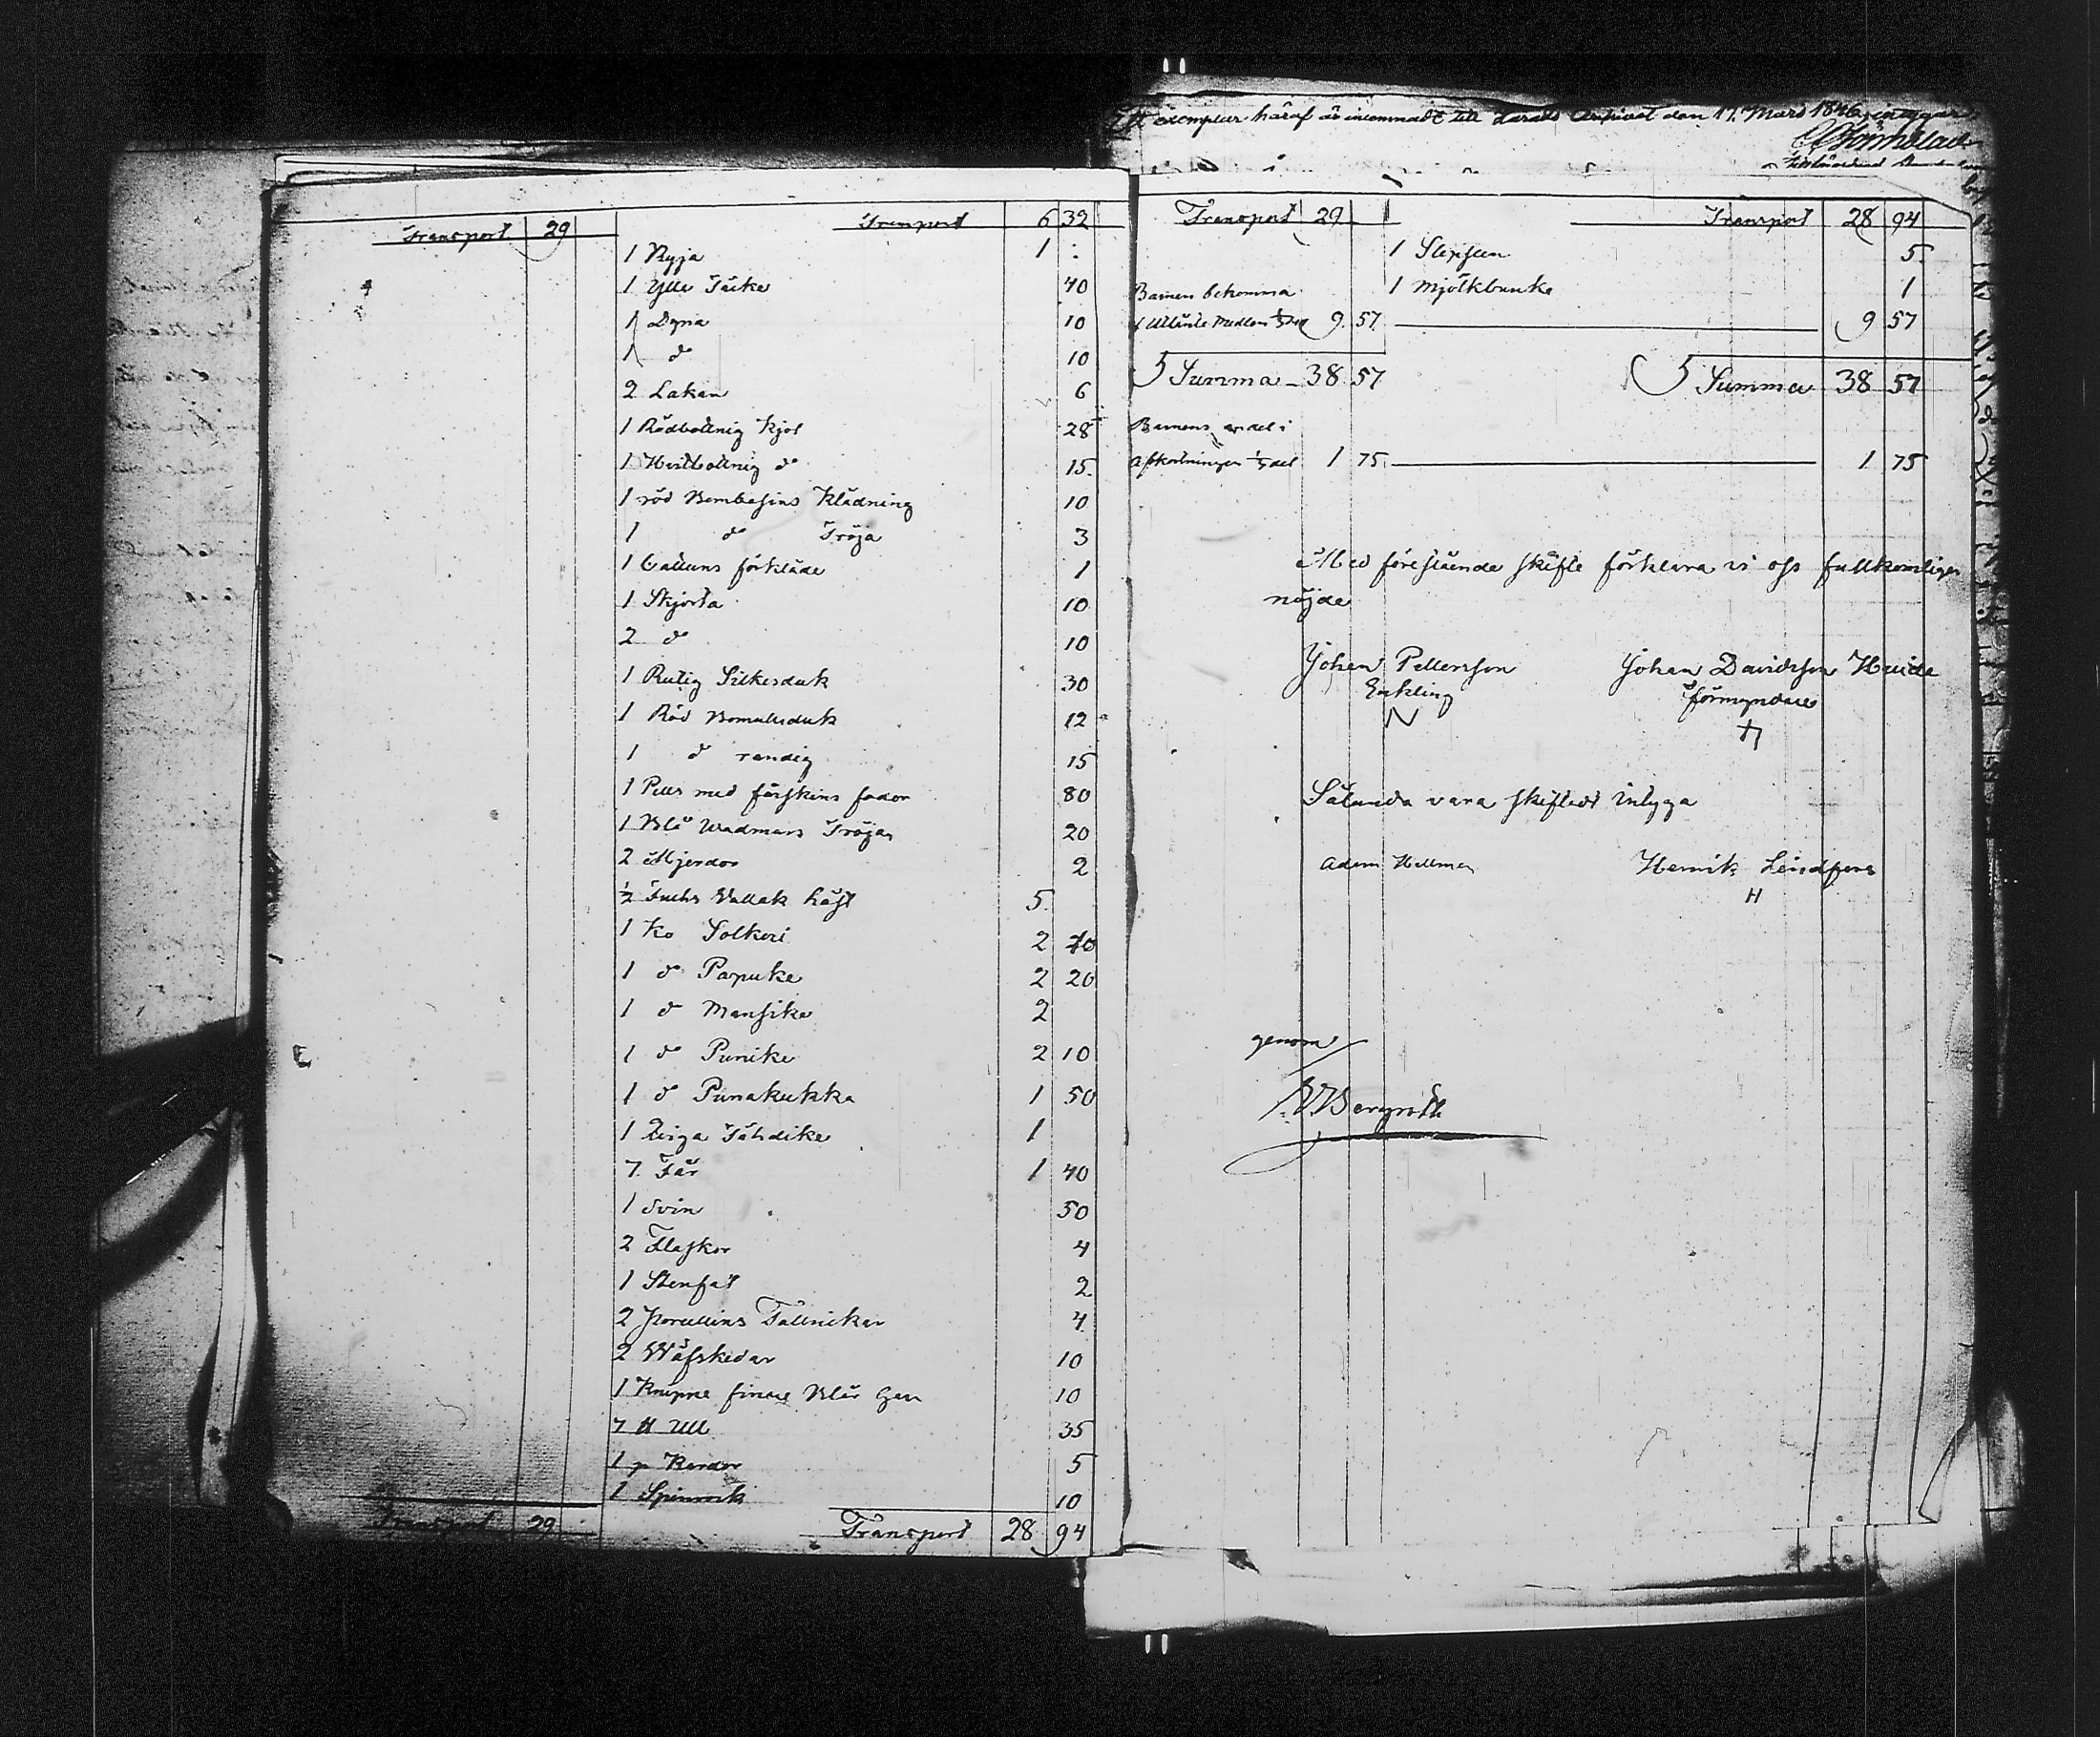 Transport 29 Transport 6 32
1 Ryja 1 :
1 Ylle Täcke 40
1 Dyna 10
1 do 10
2 Lakan 6
1 Rödbottnig Kjol 28
1 Hvitbottnig do 15
1 röd Bombasins Klädning 10
1 do Tröja 3
1 Cattuns förkläde 1
1 Skjorta 10
2 do 10
1 Rutig Silkesduk 30
1 Röd Bomullsduk 12
1 do randig 15
1 Pels med fårskins foder 80
1 Blå Wadmars Tröja 20
2 Mjerdor 2
½ Fuchs Vallak häst 5
1 Ko Solkeri 2 70
1 do Papuke 2 20
1 do Mansike 2
1 do Punike 2 10
1 do Punakukka 1 50
1 Qviga Tähdike 1
7 Får 1 40
1 Svin 50
2 Flaskor 4
1 Stenfat 2
2 Porcellins Tallrickar 4
2 Wäfskedar 10
1 Knippe finare Blår Garn 10
7 ℔ Ull 35
1 p Kardor 5
1 Spinrock 10
Transport 29 Transport 28 94
Ett exemplar häraf är inkommadt till Härads Archivet den 17 Mars 1846, intygar
Transport 29 Transport 28 94
1 5
1 Mjölkbunke 1
Barnen bekomma
9 57 9 57
Summa 38 57 Summa 38 57
Barnens andel i
Afkortningen ½ del 1 75 1 75
Med förestående skifte förklara vi oss fullkomligen
nöjde
Johan Pettersson Johan Davidsson Huide
Enkling förmyndare
N
Sålunda vara skiftadt intyga
Adam Hellman Henrik Lindfors
H
genom